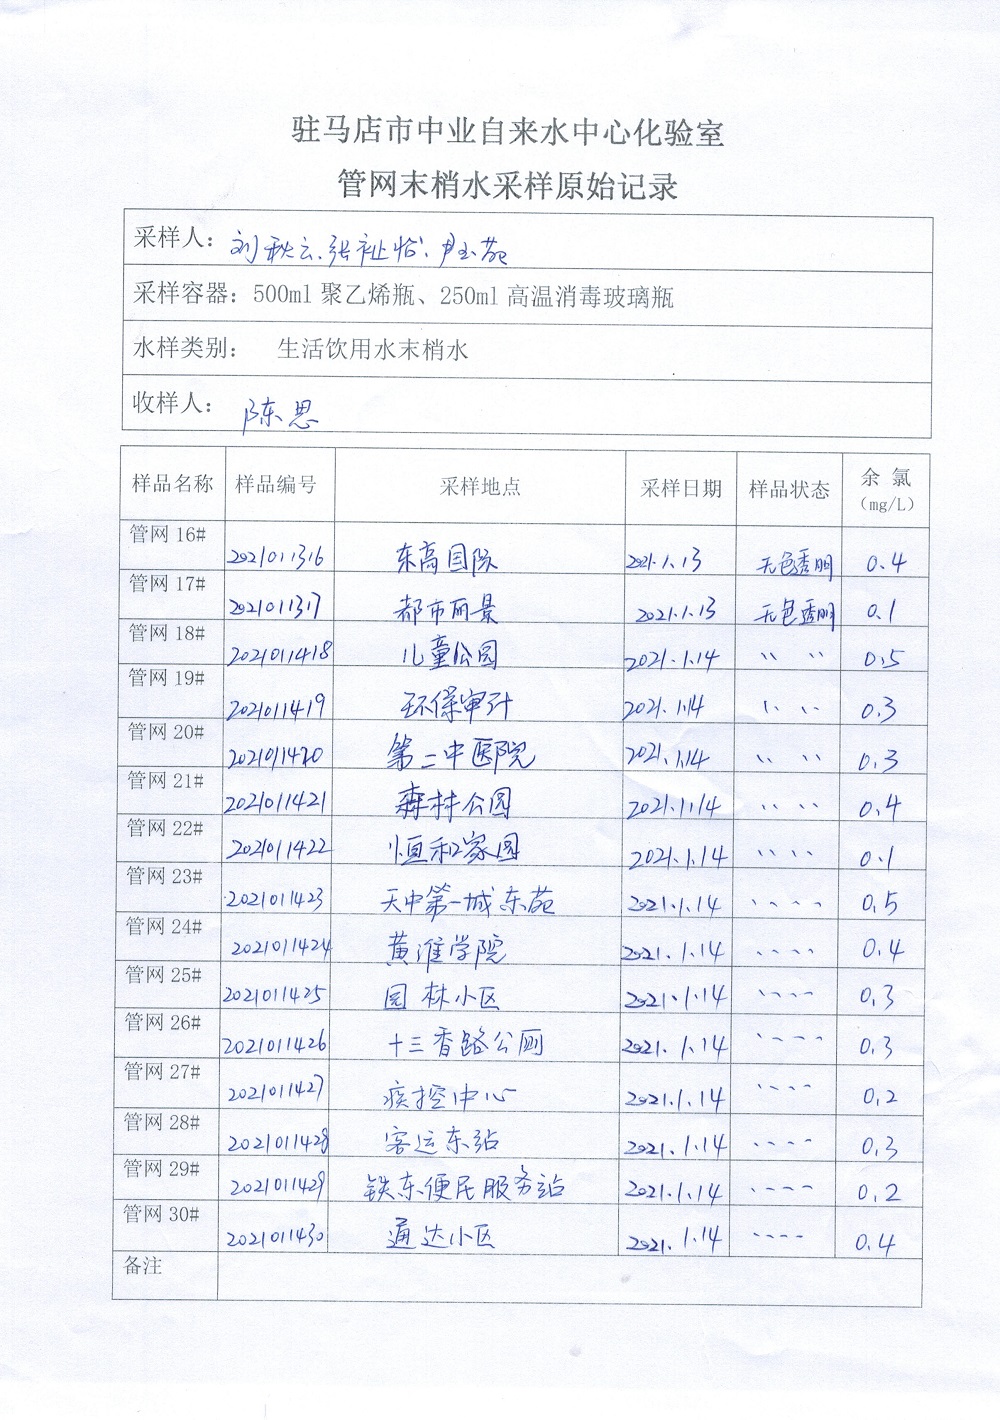 驻马店市中业自来水中心化验室
管网末梢水采样原始记录
采样人：刘秋云、张祉怡、尹玉苑
采样容器：500ml 聚乙烯瓶、250ml 高温消毒玻璃瓶
水样类别： 生活饮用水末梢水
收样人： 陈思
样品名称 样品编号 采样地点 采样日期 样品状态 余 氯（mg/L）
管网 16# 2021011316 东高国际 2021.1.13 无色透明 0.4
管网 17# 2021011317 都市丽景 2021.1.13 无色透明 0.1
管网 18# 2021011418 儿童公园 2021.1.14 〃 〃 0.5
管网 19# 2021011419 环保审计 2021.1.14 〃 〃 0.3
管网 20# 2021011420 第二中医院 2021.1.14 〃 〃 0.3
管网 21# 2021011421 森林公园 2021.1.14 〃 〃 0.4
管网 22# 2021011422 恒和家园 2021.1.14 〃 〃 0.1
管网 23# 2021011423 天中第一城东苑 2021.1.14 〃 〃 0.5
管网 24# 2021011424 黄淮学院 2021.1.14 〃 〃 0.4
管网 25# 2021011425 园林小区 2021.1.14 〃 〃 0.3
管网 26# 2021011426 十三香路公厕 2021.1.14 〃 〃 0.3
管网 27# 2021011427 疾控中心 2021.1.14 〃 〃 0.2
管网 28# 2021011428 客运东站 2021.1.14 〃 〃 0.3
管网 29# 2021011429 铁东便民服务站 2021.1.14 〃 〃 0.2
管网 30# 2021011430 通达小区 2021.1.14 〃 〃 0.4
备注